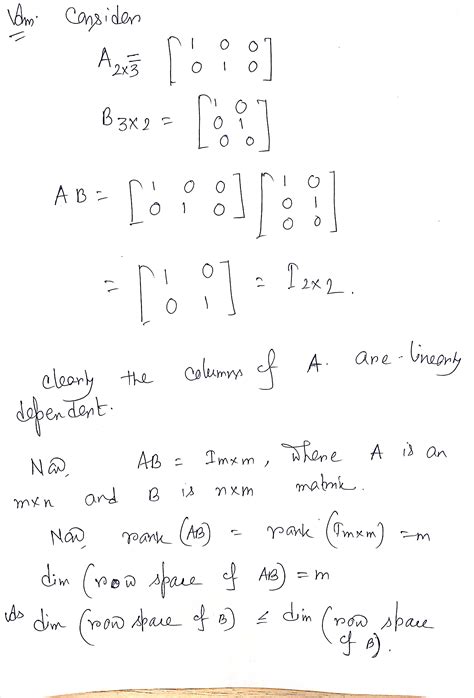 Ans. Consider
A 2x3 = [ 1 0 0
0 1 0 ]
B 3x2 = [ 1 0
0 1
0 0 ]
AB = [ 1 0 0
0 1 0 ] [ 1 0
0 1
0 0 ]
= [ 1 0
0 1 ] = I 2x2.
Clearly the columns of A. are linearly
dependent.
Now, AB = Imxm, where A is an
mxn and B is nxm matrix.
Now, rank (AB) = rank (Imxm) = m
dim (row space of AB) = m
As dim (row space of B) ≤ dim (row space
of B).